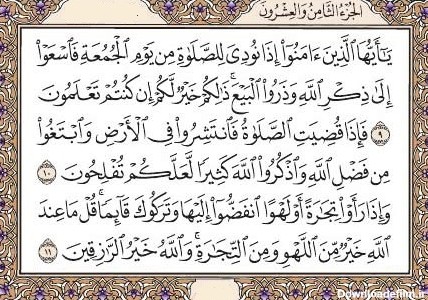 الجزء الثامن والعشرون
يَٰٓأَيُّهَا ٱلَّذِينَ ءَامَنُوٓا۟ إِذَا نُودِىَ لِلصَّلَوٰةِ مِن يَوْمِ ٱلْجُمُعَةِ فَٱسْعَوْا۟
إِلَىٰ ذِكْرِ ٱللَّهِ وَذَرُوا۟ ٱلْبَيْعَ ۚ ذَٰلِكُمْ خَيْرٌ لَّكُمْ إِن كُنتُمْ تَعْلَمُونَ
٩ فَإِذَا قُضِيَتِ ٱلصَّلَوٰةُ فَٱنتَشِرُوا۟ فِى ٱلْأَرْضِ وَٱبْتَغُوا۟
مِن فَضْلِ ٱللَّهِ وَٱذْكُرُوا۟ ٱللَّهَ كَثِيرًا لَّعَلَّكُمْ تُفْلِحُونَ ١٠
وَإِذَا رَأَوْا۟ تِجَٰرَةً أَوْ لَهْوًا ٱنفَضُّوٓا۟ إِلَيْهَا وَتَرَكُوكَ قَآئِمًا ۚ قُلْ مَا عِندَ
ٱللَّهِ خَيْرٌ مِّنَ ٱللَّهْوِ وَمِنَ ٱلتِّجَٰرَةِ ۚ وَٱللَّهُ خَيْرُ ٱلرَّٰزِقِينَ ١١